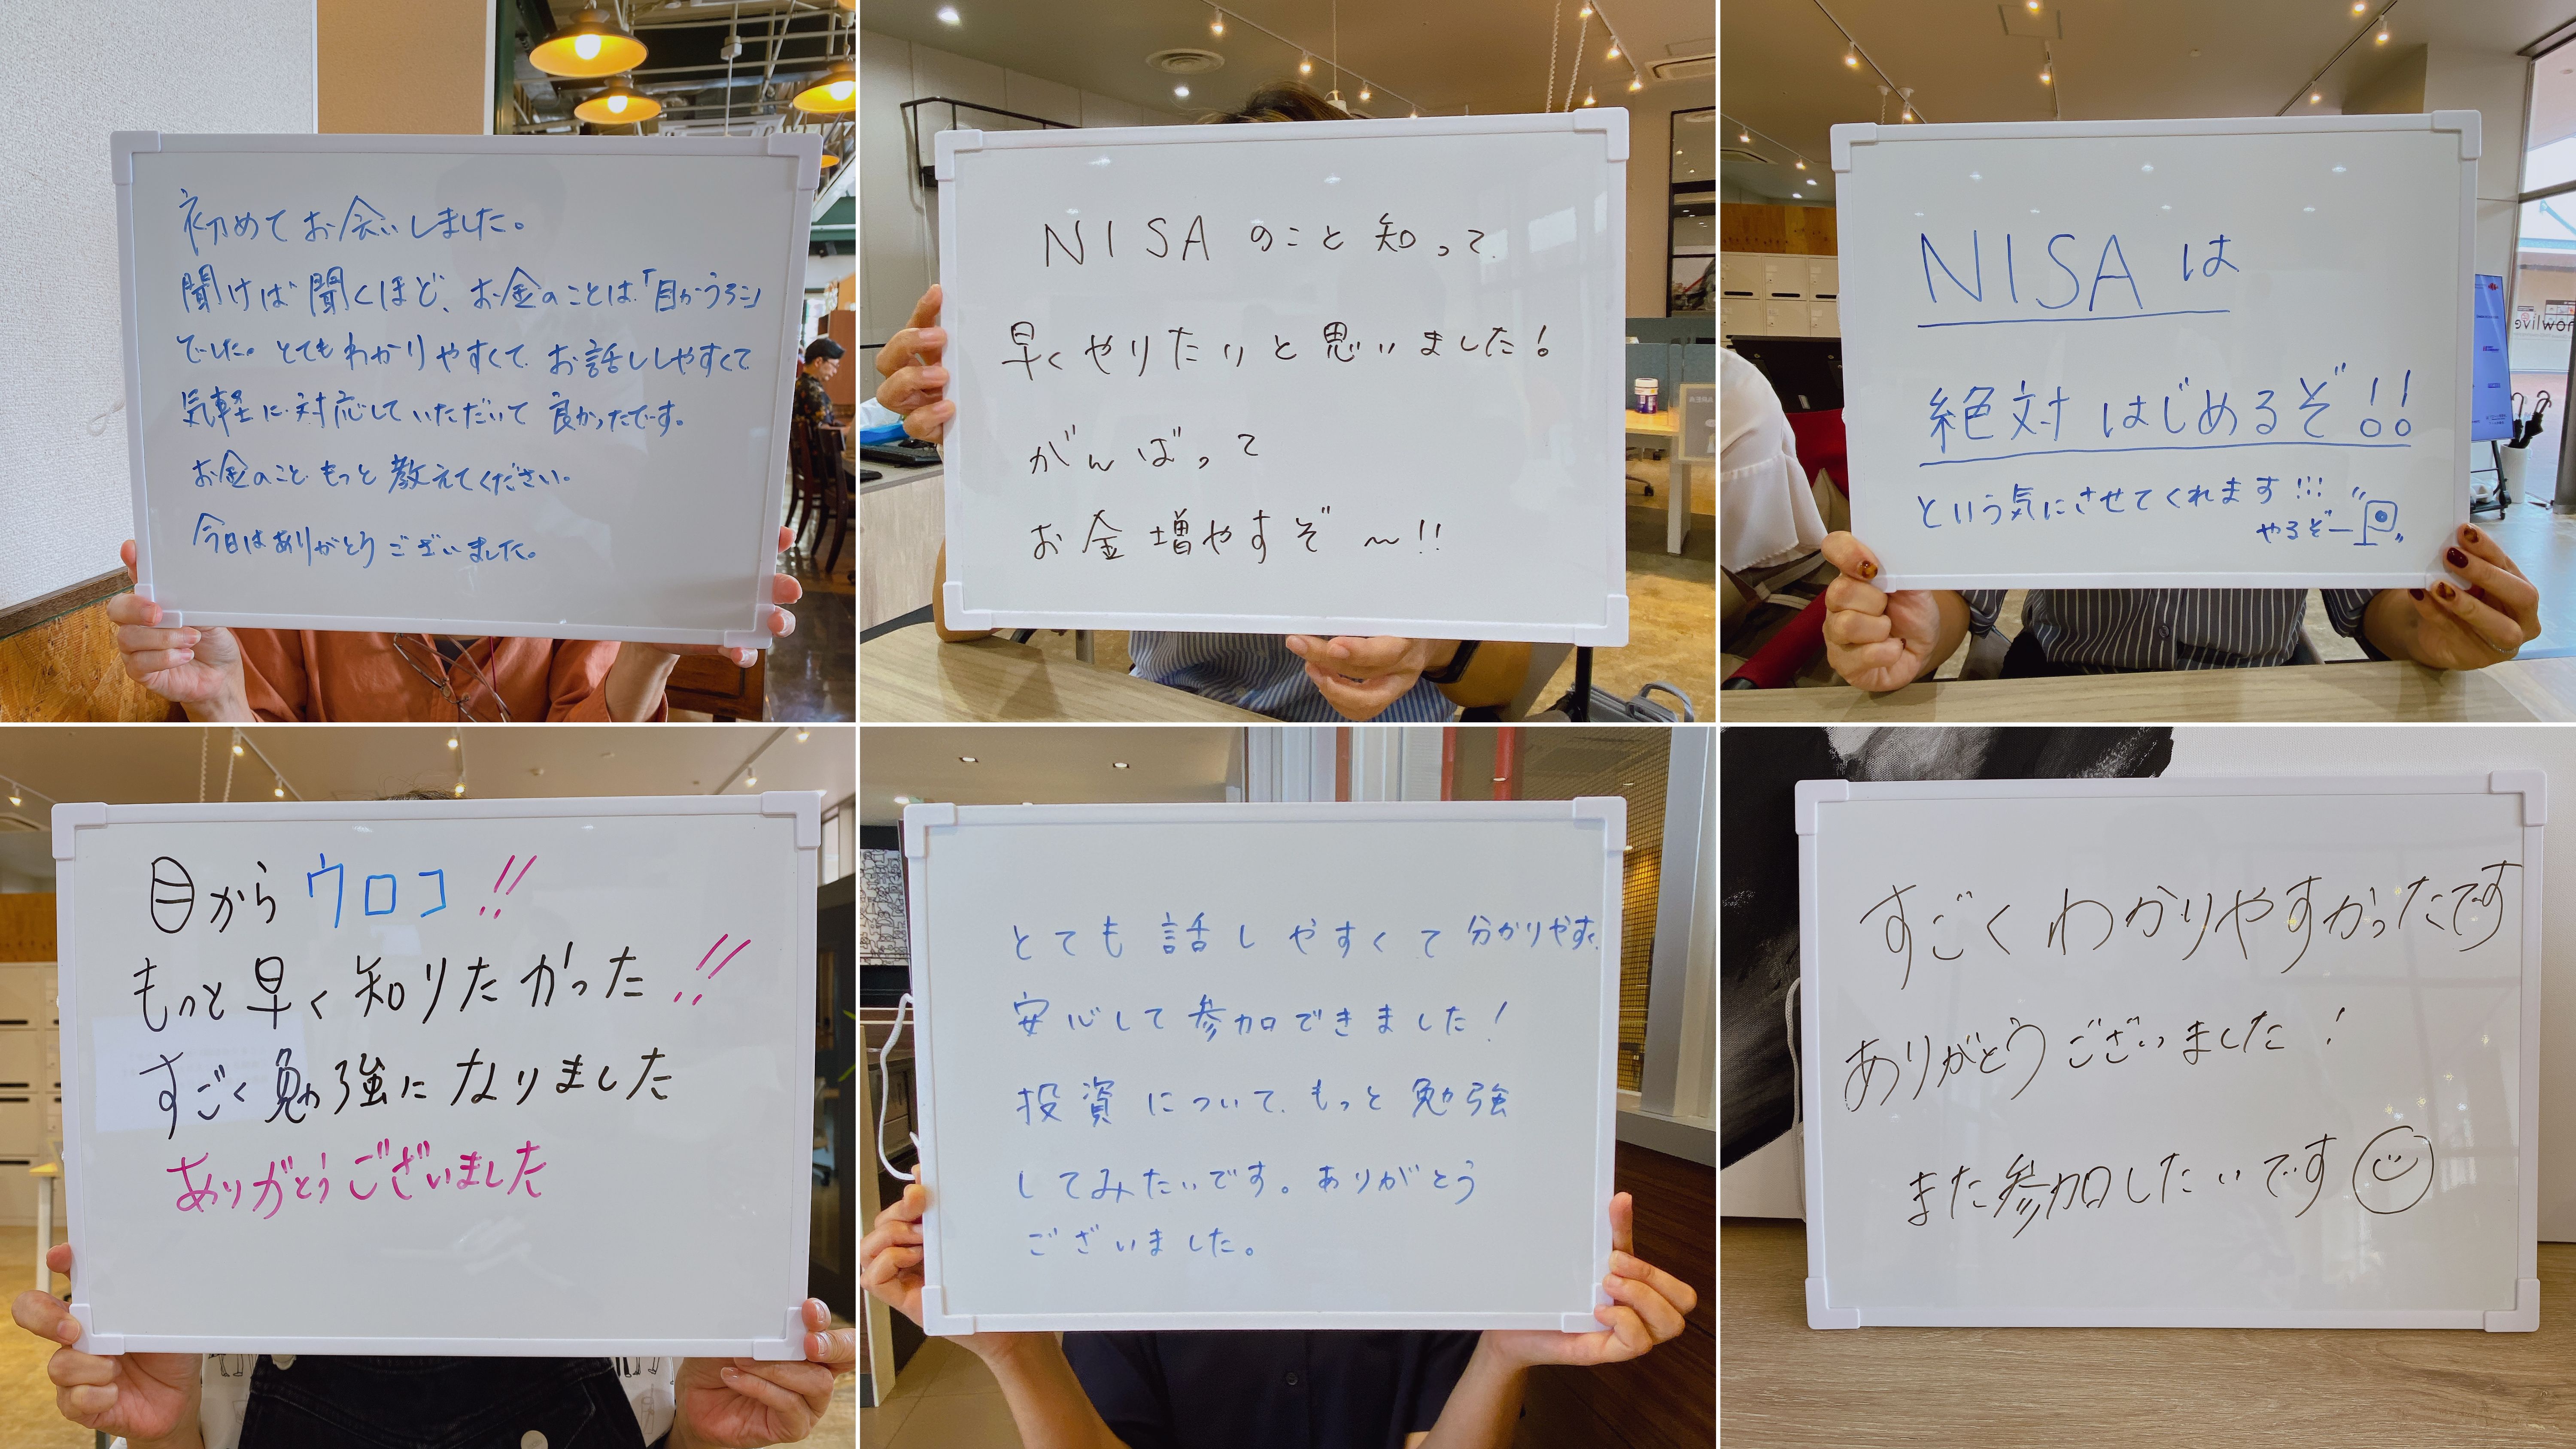 初めてお会いしました。
聞けば聞くほど、お金のことは「目からうろこ」
でした。とてもわかりやすくて お話ししやすくて
気軽に対応していただいて 良かったです。
お金のこともっと教えてください。
今日はありがとうございました。
NISAのこと知って
早くやりたいと思いました!
がんばって
お金増やすぞ〜!!
NISAは
絶対はじめるぞ!!
という気にさせてくれます!!!
やるぞー
目からウロコ!!
もっと早く知りたかった!!
すごく勉強になりました
ありがとうございました
とても話しやすくて分かりやすく
安心して参加できました!
投資について、もっと勉強
してみたいです。ありがとう
ございました。
すごくわかりやすかったです
ありがとうございました!
また参加したいです